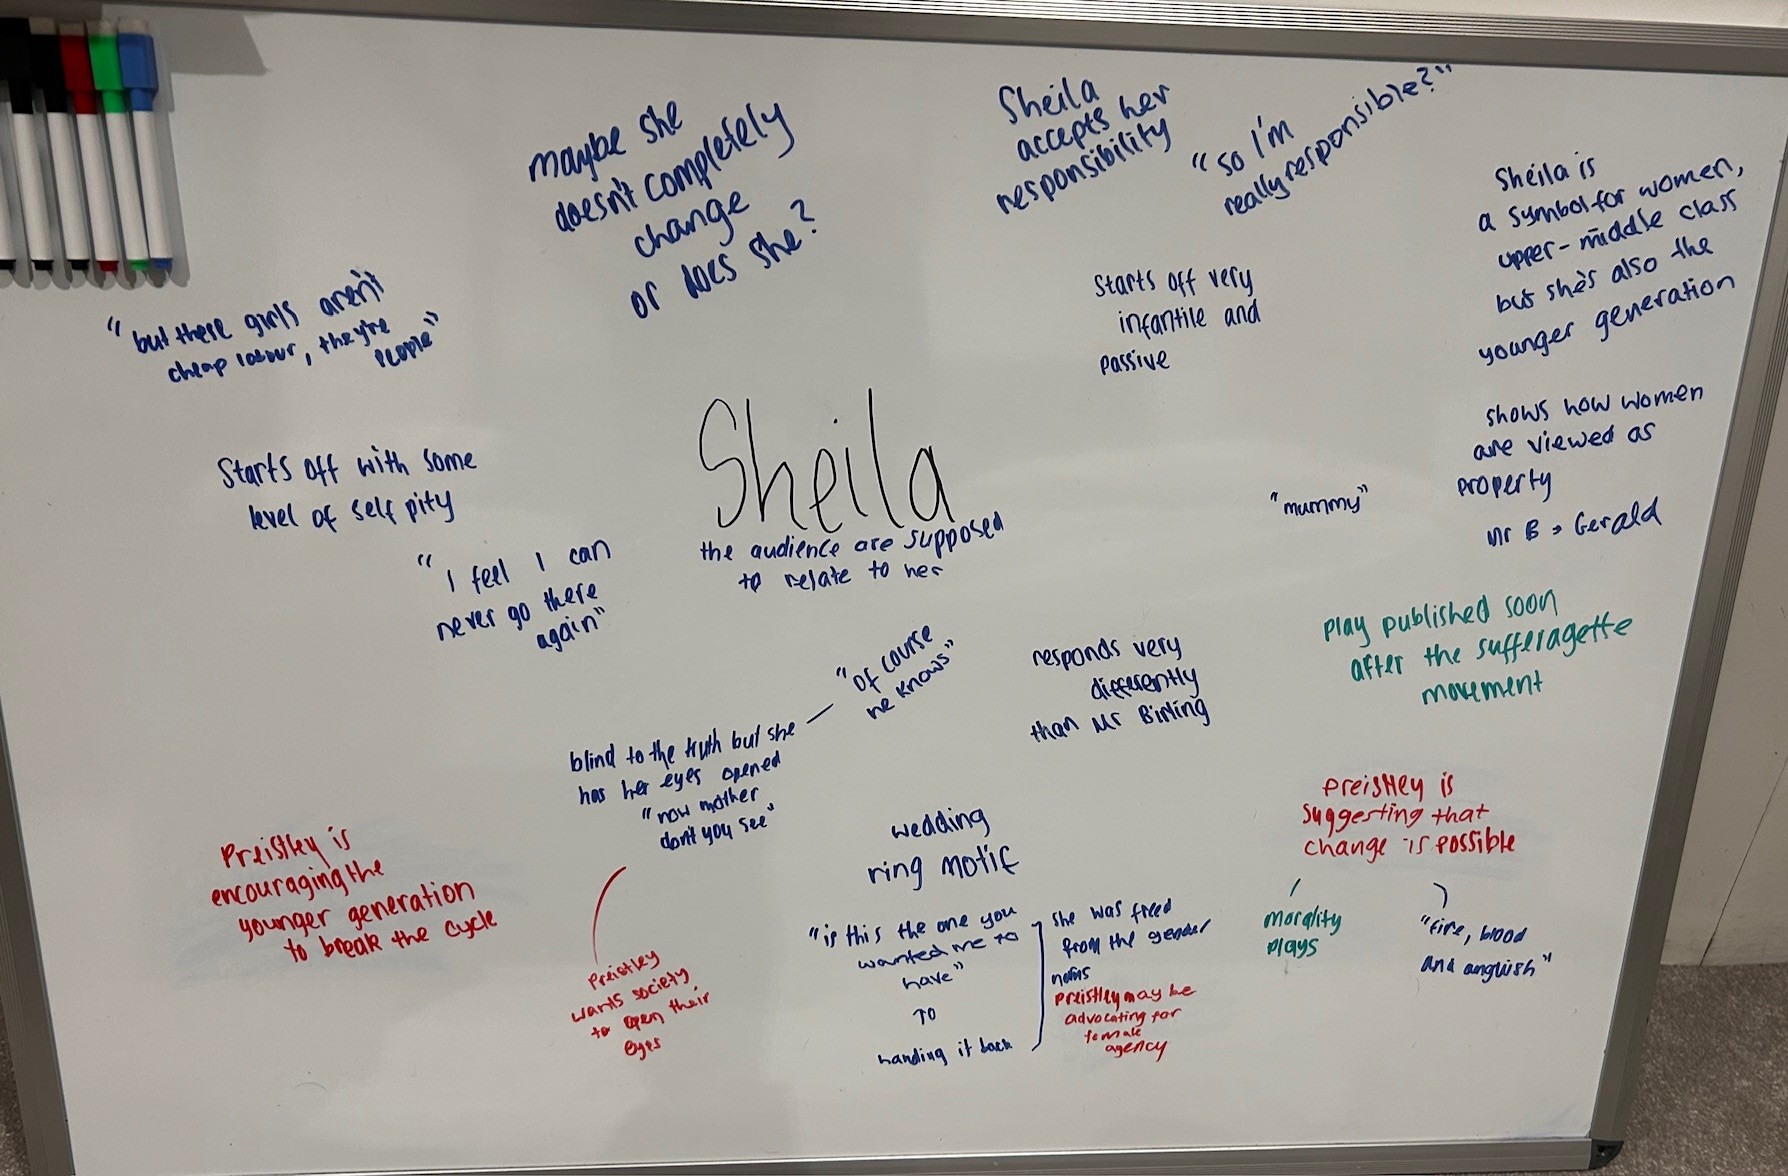 maybe she
doesn't completely
change
or does she?
Sheila
accepts her
responsibility
"so I'm
really responsible?"
Sheila is
a symbol for women,
upper-middle class
but she's also the
younger generation
"but these girls aren't
cheap labour, they're
people"
starts off very
infantile and
passive
Starts off with some
level of self pity
Sheila
the audience are supposed
to relate to her
"mummy"
shows how women
are viewed as
property
Mr B > Gerald
"I feel I can
never go there
again"
play published soon
after the sufferagette
movement
"of course
he knows"
responds very
differently
than Mr Birling
blind to the truth but she
has her eyes opened
"now mother
don't you see"
Preistley is
encouraging the
younger generation
to break the cycle
Preistley
wants society
to open their
eyes
wedding
ring motif
"is this the one you
wanted me to
have"
TO
handing it back
she was freed
from the gender
norms
preistley may be
advocating for
female
agency
preistley is
suggesting that
change is possible
morality
plays
"fire, blood
and anguish"